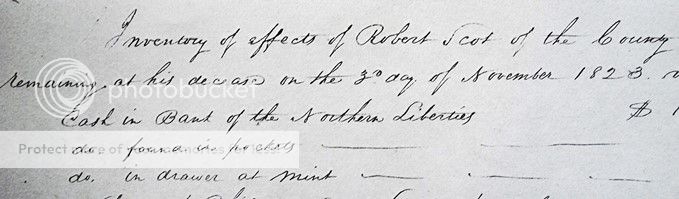 Inventory of effects of Robert Scot of the County
remaining at his decease on the 3d day of November 1823.
Cash in Bank of the Northern Liberties $ 1
do. found in pockets
do. in drawer at mint
photobucket
Protect more of your memories for less!